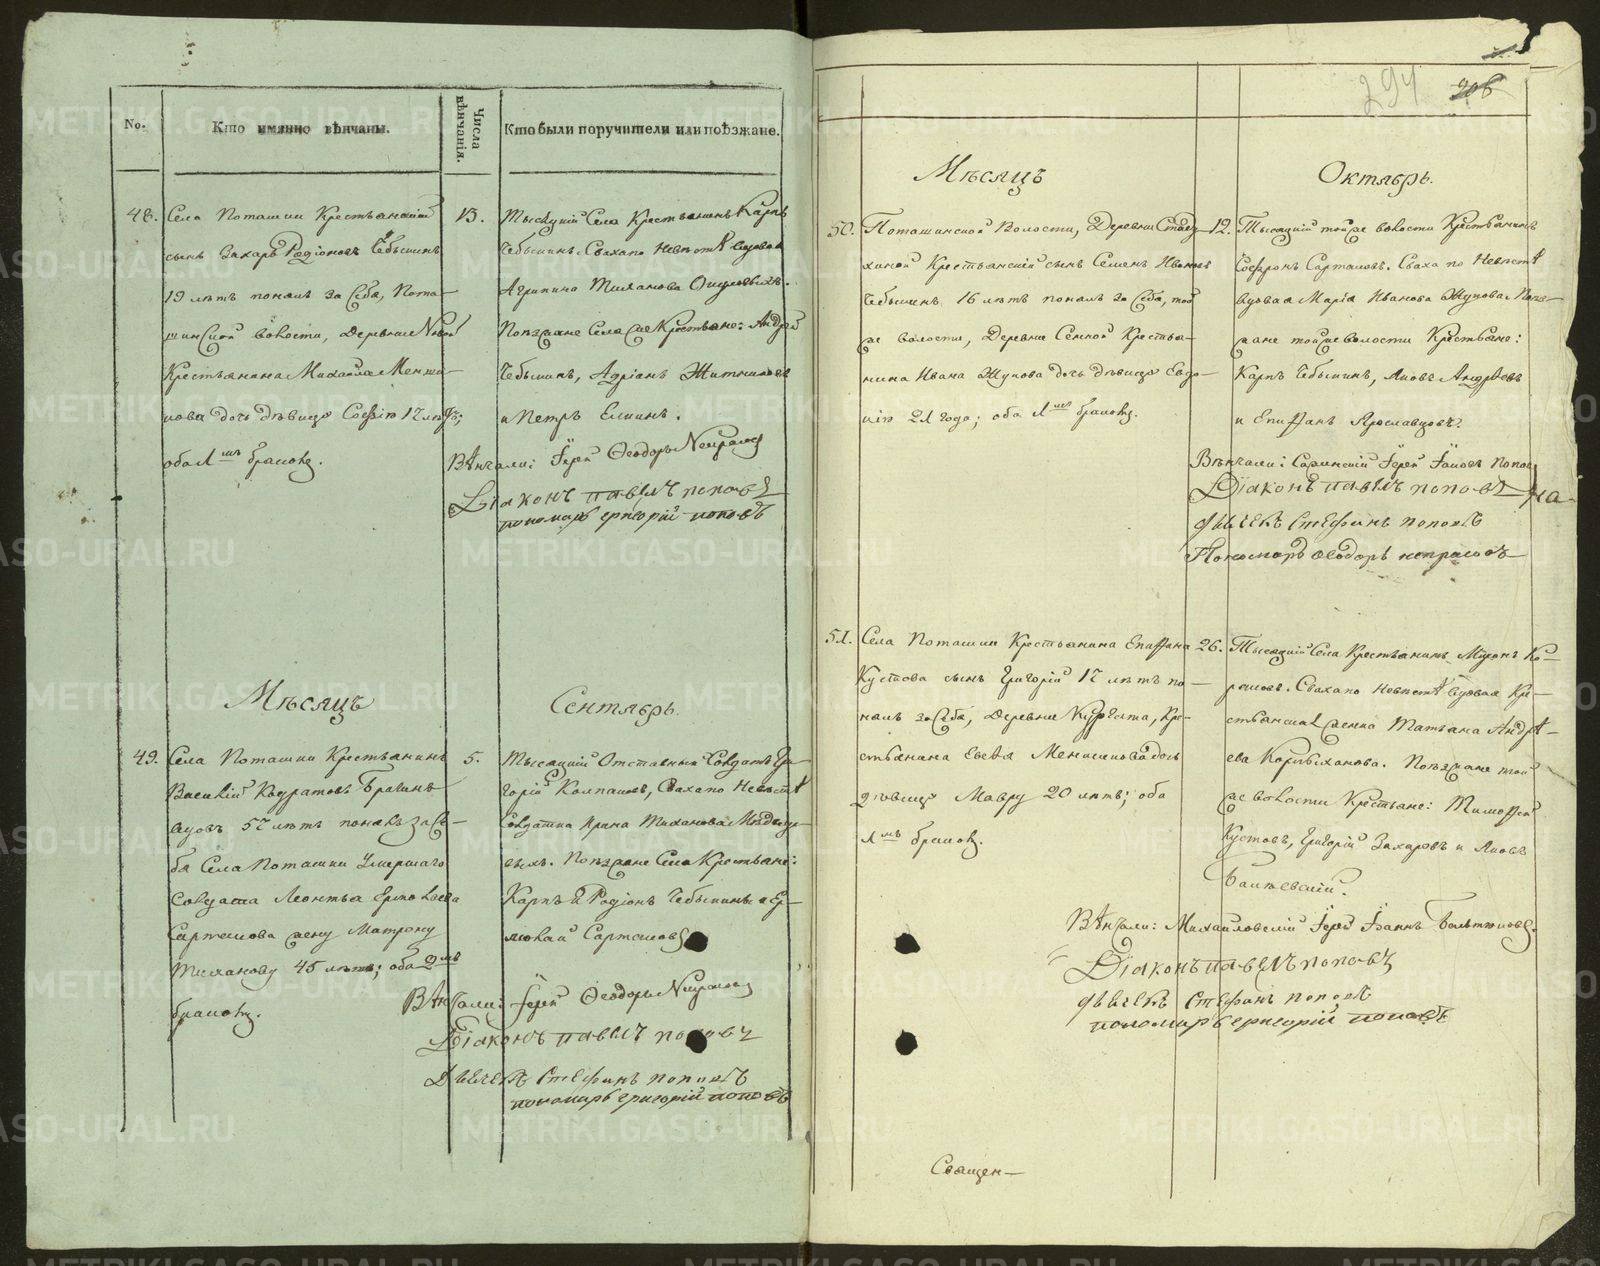 No.
Кто имянно вѣнчаны.
Числа вѣнчанія.
Кто были поручители или поѣзжане.
48. Села Поташки Крестьянскій
сынъ Захаръ Радіоновъ Чебыкинъ
19 лѣтъ понялъ за себя, Пота-
шинской волости, Деревни
Крестьянина Михайла Менши-
кова дочь дѣвицу Софію 17 лѣтъ;
оба 1мъ бракомъ.
13. Тысяцкій Села Крестьянинъ Карпъ
Чебыкинъ. Сваха по Невѣстѣ вдовая
Агрипина Тиханова
Поѣзжане Села же Крестьяне: Андрей
Чебыкинъ, Адріанъ Житниковъ
и Петръ Елкинъ.
Вѣнчали: Іерей Ѳеодоръ Некрасовъ
Діаконъ павелъ поповъ
пономарь григорій поповъ
Мѣсяцъ Сентябрь.
49. Села Поташки Крестьянинъ
Василій Кодратовъ Брагинъ
вдовъ 57 лѣтъ понялъ за се-
бя Села Поташки умершаго
Солдата Леонтья Ермолаева
Сартакова жену Матрону
Тиханову 45 лѣтъ; оба 2мъ
бракомъ.
5. Тысяцкій Отставный Солдатъ Гри-
горій Колпаковъ, Сваха по Невѣстѣ
Солдатка Ирина Тиханова Медвѣде-
выхъ. Поѣзжане Села Крестьяне:
Карпъ и Радіонъ Чебыкины и Ер-
молай Сартаковъ
Вѣнчали: Іерей Ѳеодоръ Некрасовъ
Діаконъ павелъ поповъ
Дьячекъ Стефанъ поповъ
пономарь григорій поповъ
294
206
Мѣсяцъ Октябрь.
50. Поташинской Волости, Деревни
Крестьянскій сынъ Семенъ Ивановъ
Чебыкинъ 16 лѣтъ понялъ за себя, той
же волости, Деревни Сенной Крестья-
нина Ивана Жукова дочь дѣвицу Евдо-
кію 21 года; оба 1мъ бракомъ.
12. Тысяцкій той же волости Крестьянинъ
Софронъ Сартаковъ. Сваха по Невѣстѣ
вдовая Марія Иванова Жукова. Поѣз-
жане той же волости Крестьяне:
Карпъ Чебыкинъ, Яковъ Андрѣевъ
и Епифанъ Ярославцовъ.
Вѣнчали: Іерей Іаковъ Попов
Діаконъ павелъ поповъ
дьячекъ Стефанъ поповъ
Пономарь Ѳеодоръ некрасовъ
51. Села Поташки Крестьянина Епифана
Кустова сынъ Григорій 17 лѣтъ по-
нялъ за себя, Деревни Кре-
стьянина Евсѣя Меншикова дочь
дѣвицу Мавру 20 лѣтъ; оба
1мъ бракомъ.
26. Тысяцкій Села Крестьянинъ Миронъ Ко-
раковъ. Сваха по Невѣстѣ вдовая Кре-
стьянская женка Татьяна Андрѣ-
ева Поѣзжане той
же волости Крестьяне: Тимофей
Кустовъ, Григорій Захаровъ и Яковъ
Вѣнчали: Михайловскій Іерей Іоаннъ
Діаконъ павелъ поповъ
дьячекъ Стефанъ поповъ
пономарь григорій поповъ
Священ-
METRIKI.GASO-URAL.RU